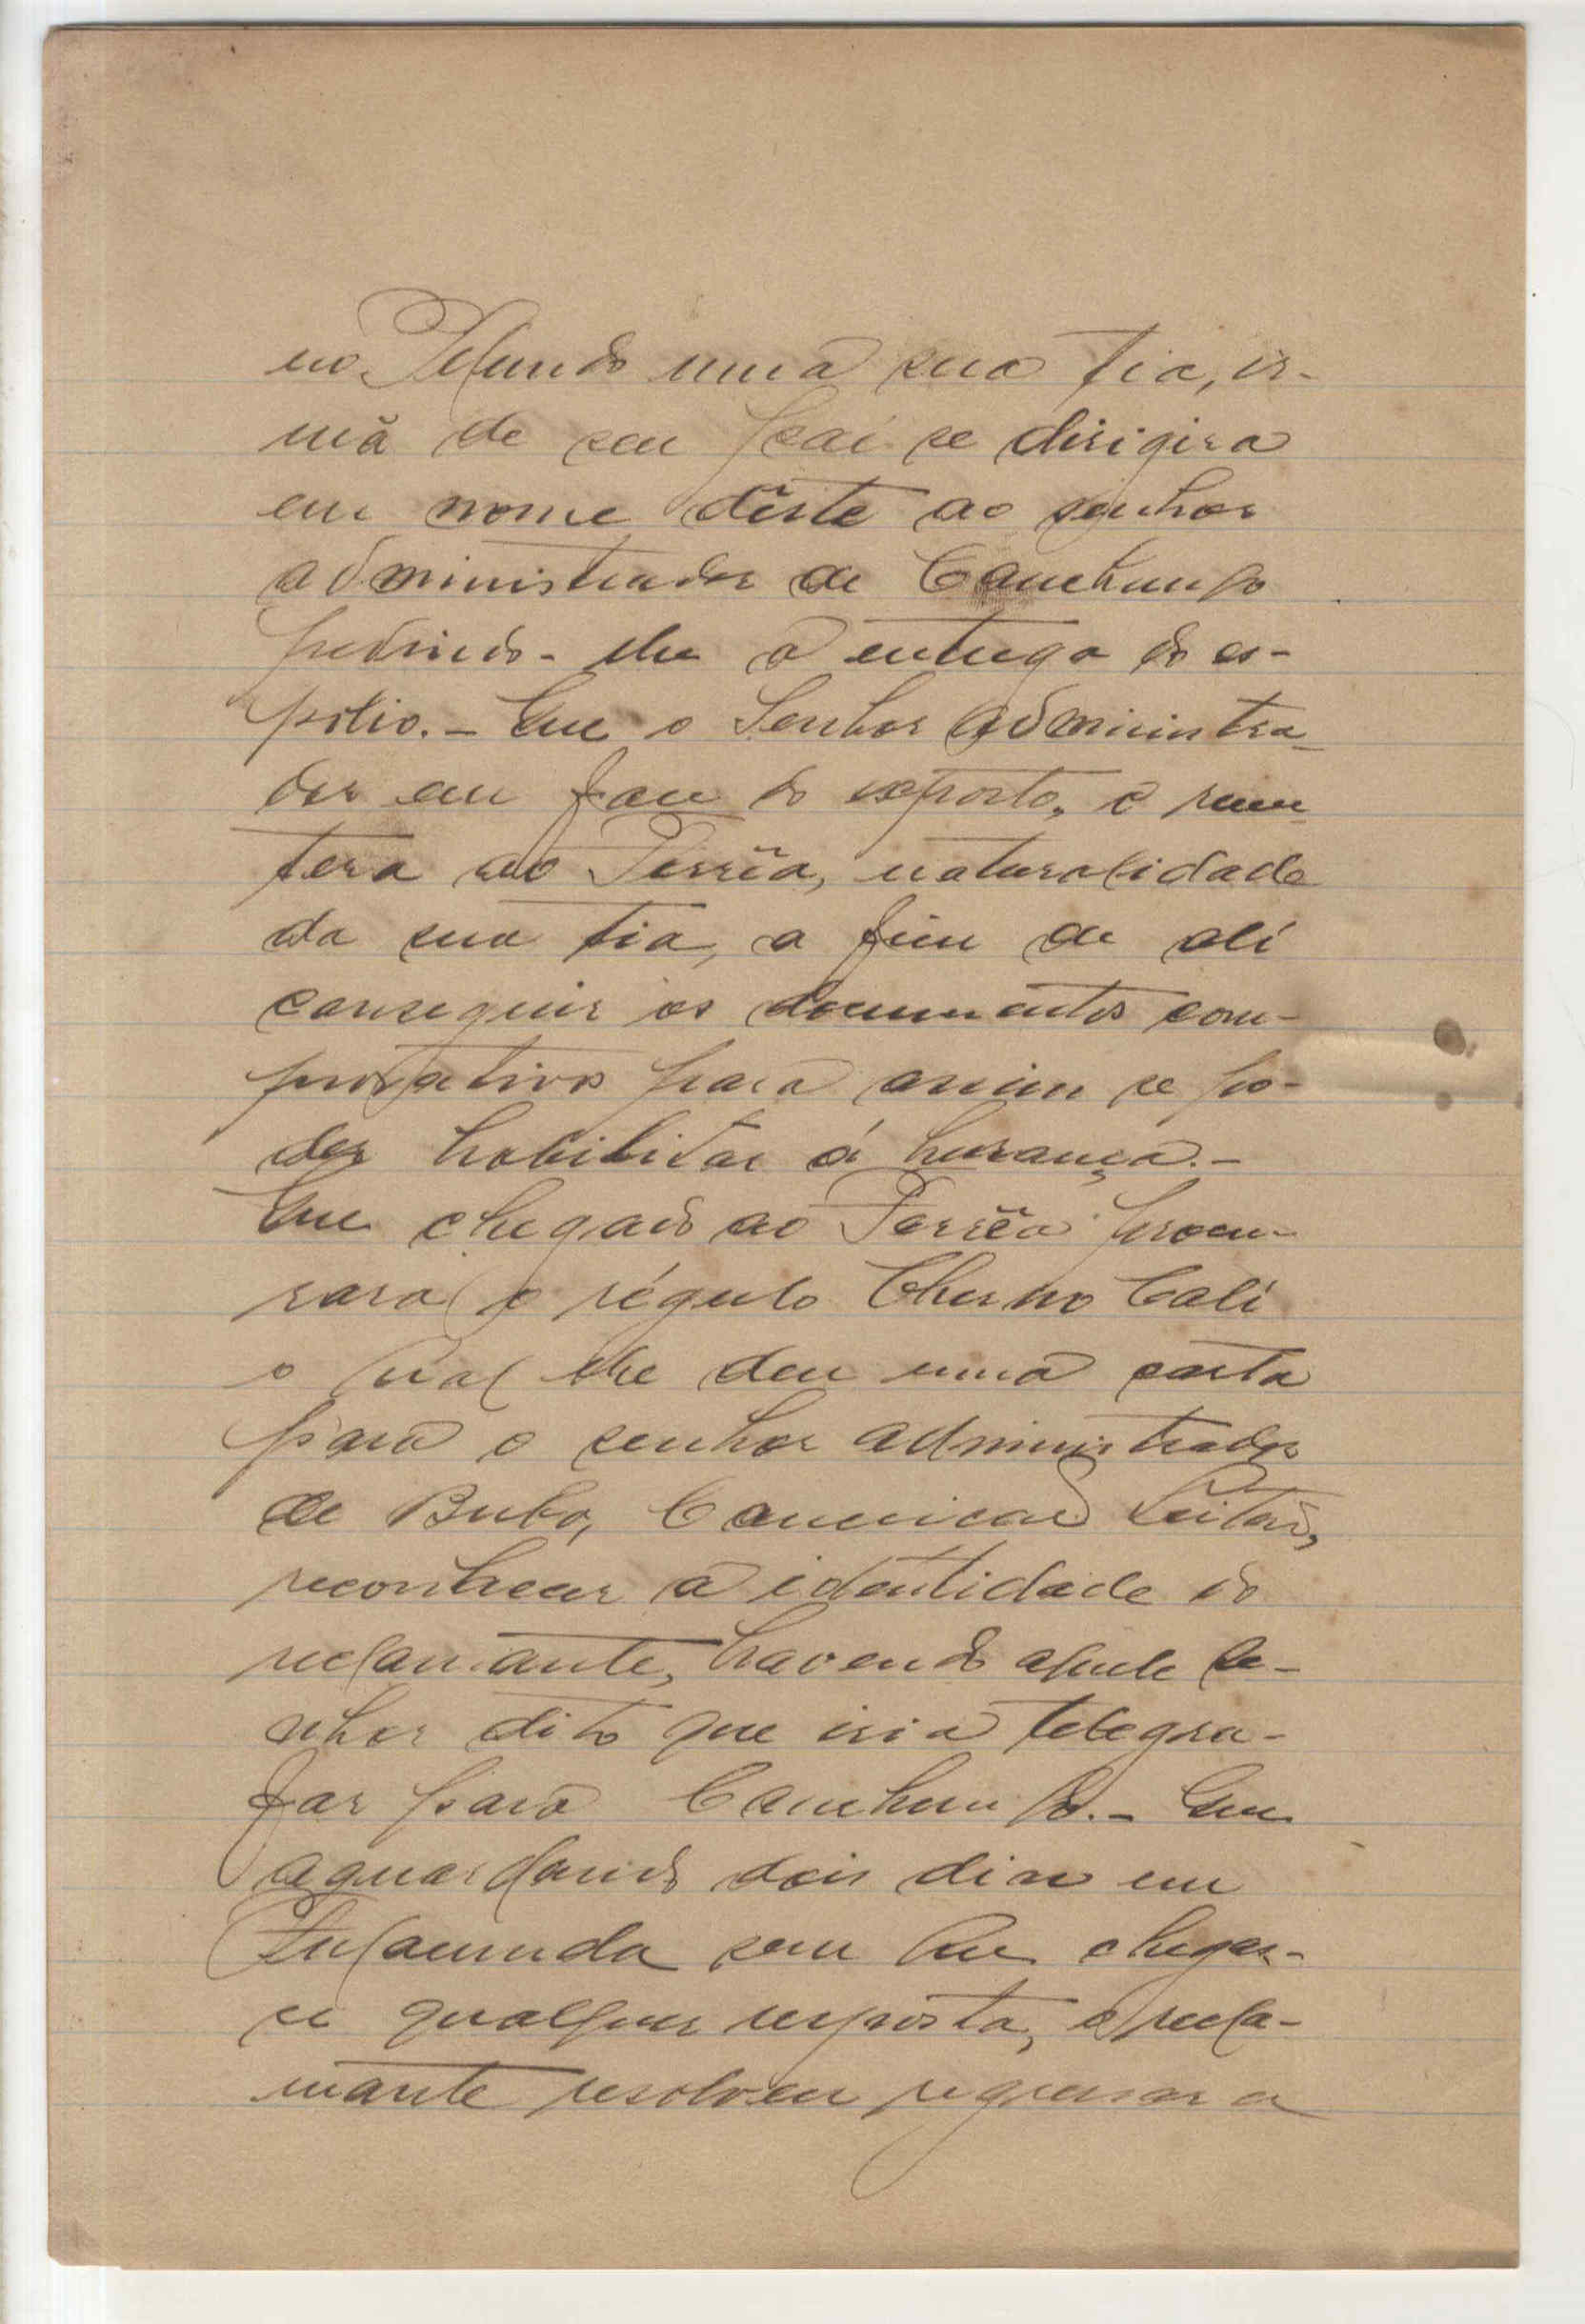 no Pelundo uma sua tia, ir-
mã de seu pai se dirigira
em nome dêste ao senhor
administrador de Canchungo
pedindo-lhe a entrega do es-
pólio. - Que o Senhor Administra-
dor em face do exposto, o reme-
tera ao Forrêa, naturalidade
da sua tia, a fim de ali
conseguir os documentos com-
provativos para assim se po-
der habilitar á herança. -
Que chegado ao Forrêa procu-
rara o régulo Cherno Cali
o qual lhe deu uma carta
para o senhor administrador
de Buba, Leitão,
reconhecer a identidade do
reclamante, havendo aquele se-
nhor dito que iria telegra-
far para Canchungo. - Que
aguardando dois dias em
Fulacunda sem que chegas-
se qualquer resposta, o recla-
mante resolveu regressar a